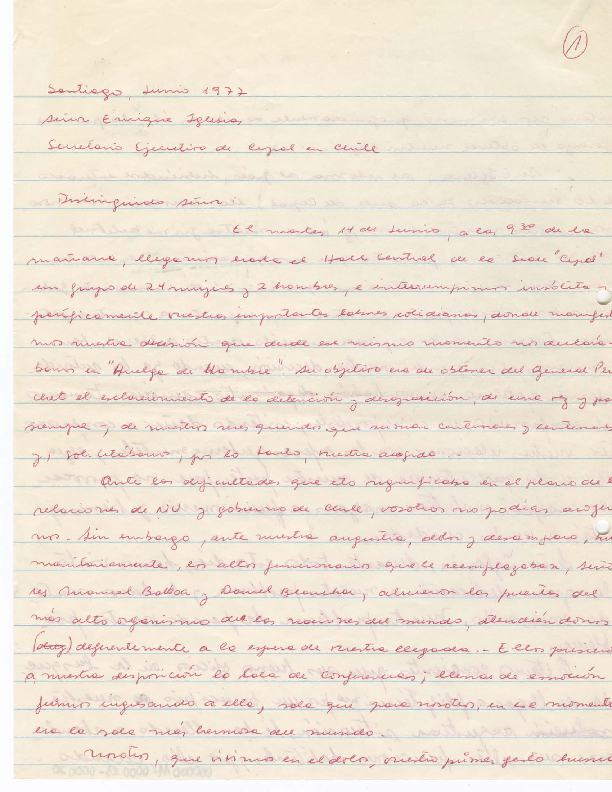 1
Santiago, Junio 1977
Señor Enrique Iglesias
Secretario Ejecutivo de Cepal en Chile
Distinguido Señor:
El martes 14 de Junio, a las 9³⁰ de la
mañana, llegamos hasta el Hall Central de la Sede "Cepal"
un grupo de 24 mujeres y 2 hombres, e interrumpimos insólita y
pacíficamente vuestras importantes labores cotidianas, donde manifest
mos nuestra decisión que desde ese mismo momento nos declará-
bamos en "Huelga de Hambre" Su objetivo era de obtener del General Pino
chet el esclarecimiento de la detención y desaparición, de una vez y para
siempre, de nuestros seres queridos, que suman centenares y centenares
y, solicitábamos, por lo tanto, vuestra acogida.
Ante las dificultades que esto significaba en el plano de l
relaciones de NU y gobierno de Chile, vosotros no podías acoger
nos. Sin embargo, ante nuestra angustia, dolor y desamparo, hu
manitariamente, los altos funcionarios que le reemplazaban, seño
res Manuel Balboa y Daniel Blanchar, abrieron las puertas del
más alto organismo de las naciones del mundo, atendiéndonos
deferentemente a la espera de vuestra llegada. - Ellos pusieron
a nuestra disposición la Sala de Conferencias; llenas de emoción
fuimos ingresando a ella, sala que para nosotros, en ese momento
era la sala más hermosa del mundo.
Nosotros, que vivimos en el dolor, nuestro primer gesto